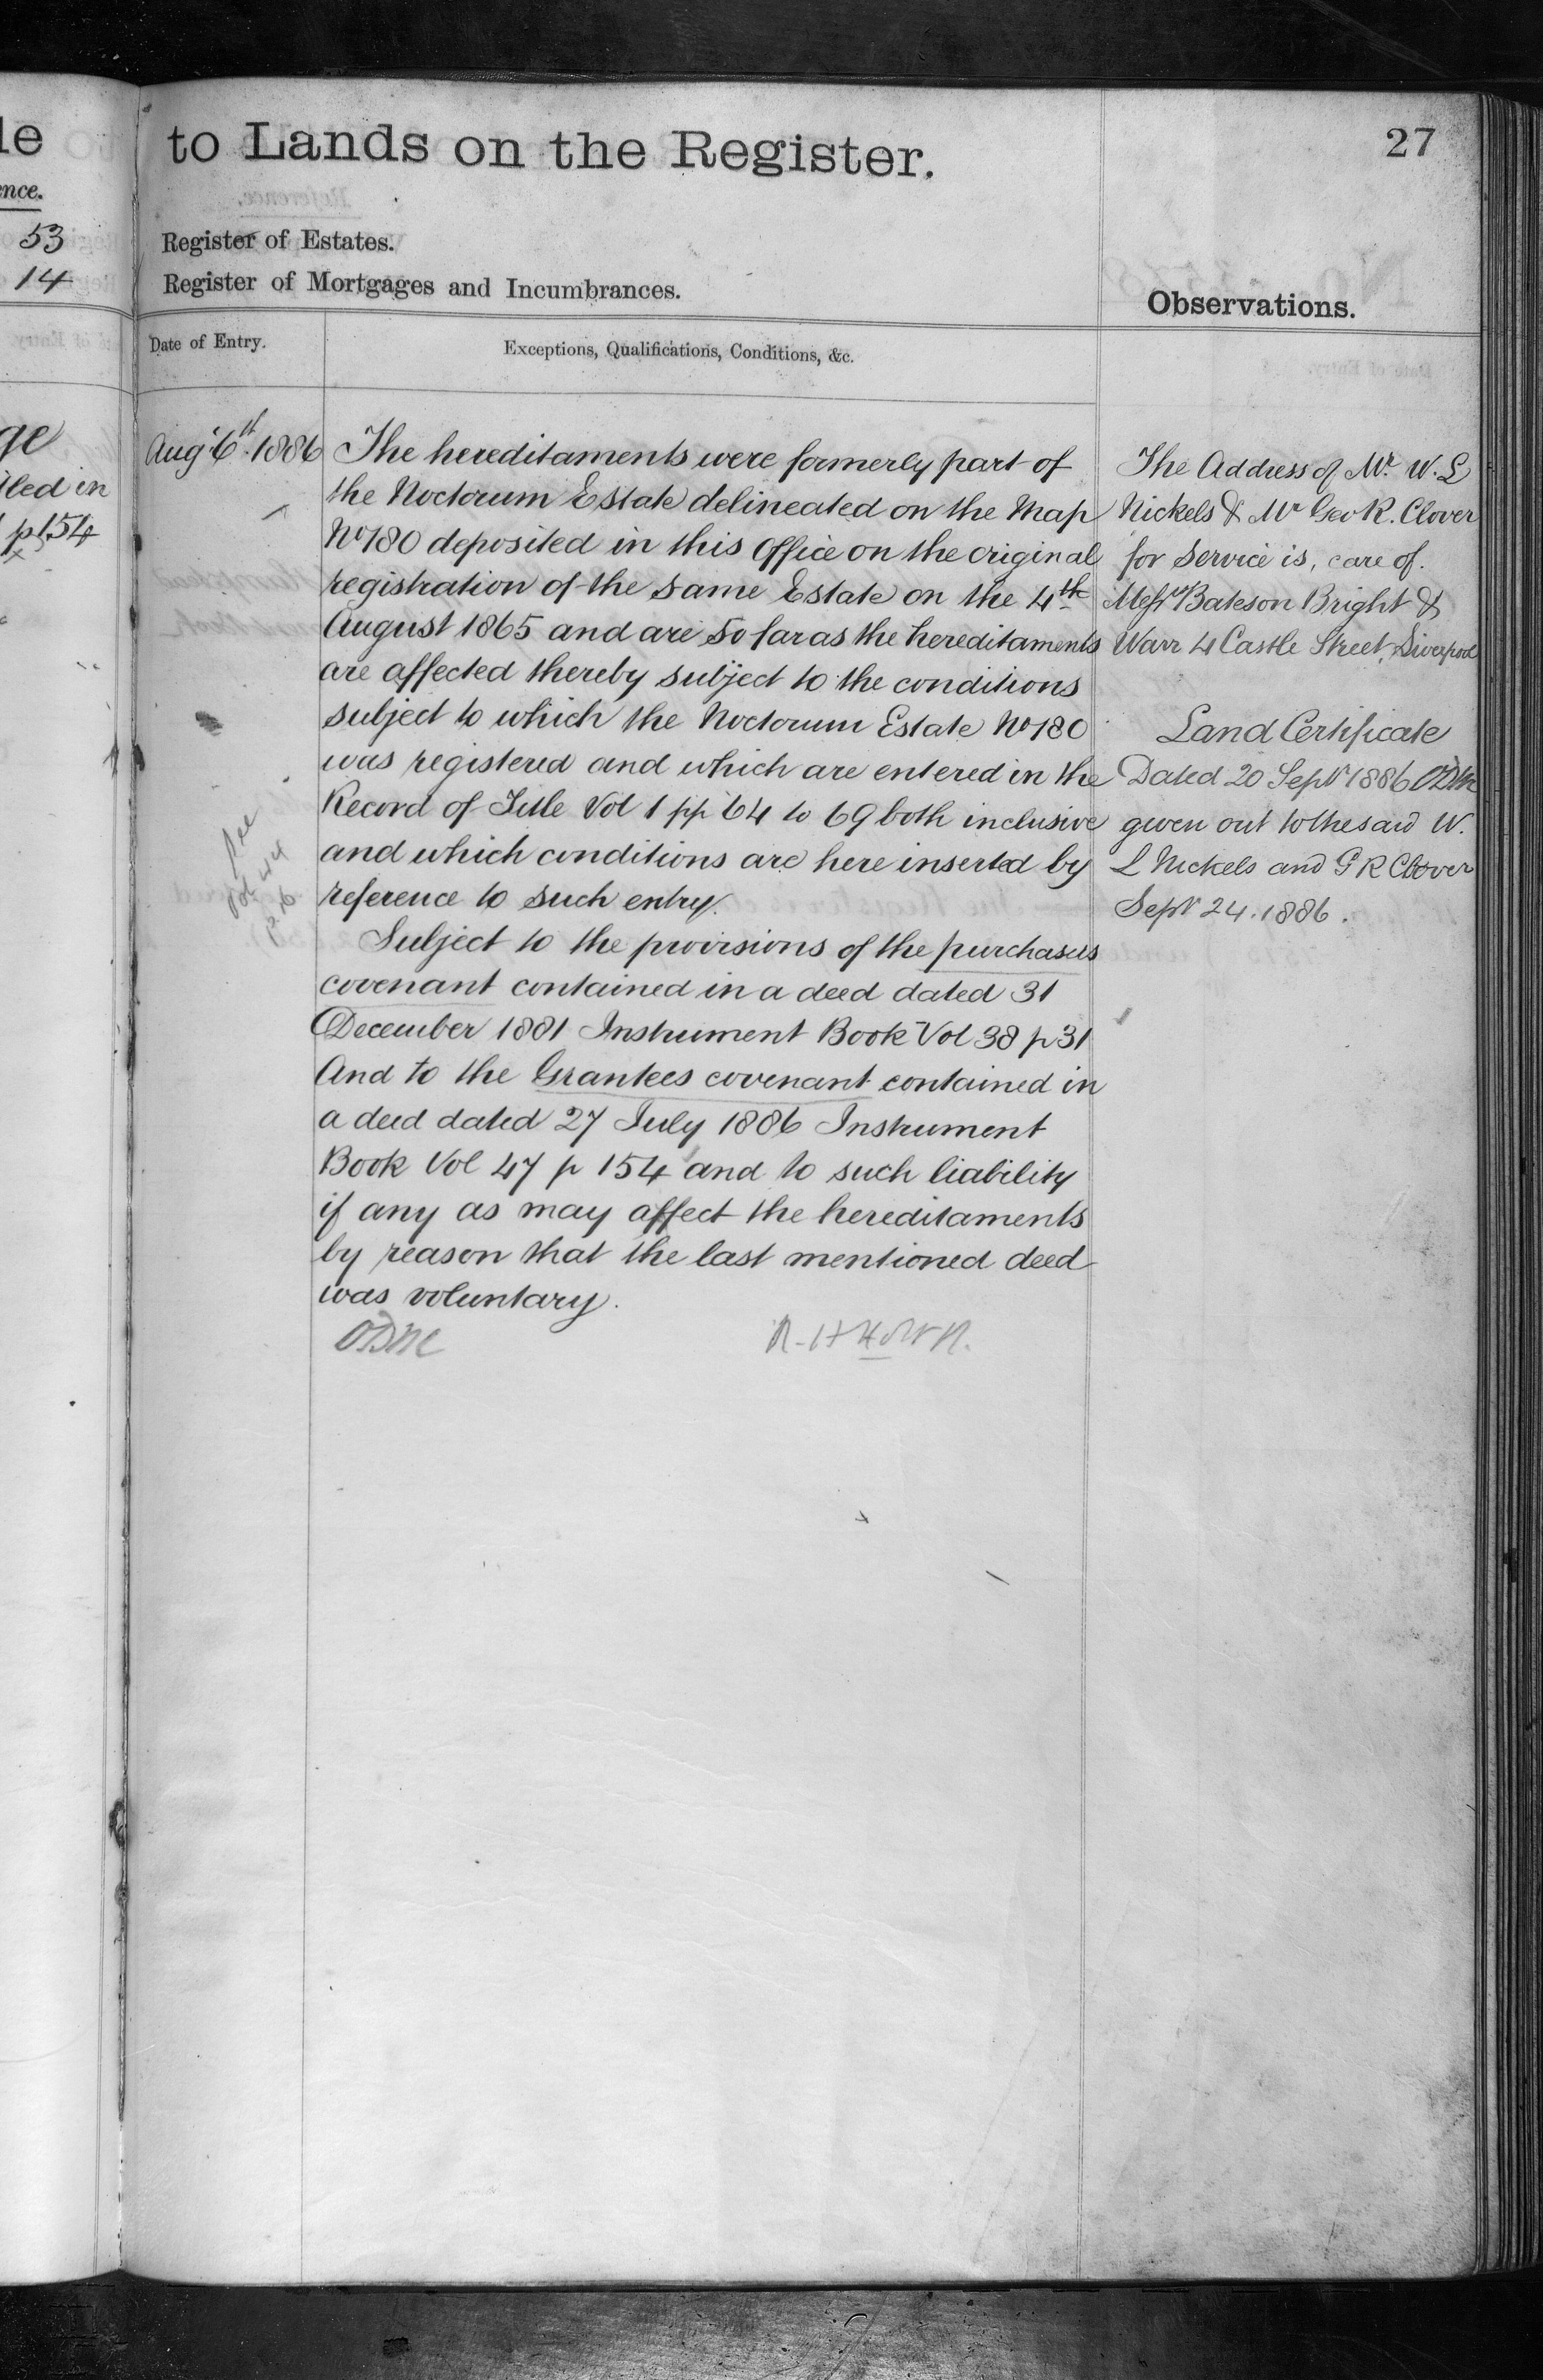 le
nce.
53
14
ge
lled in
p 154
to Lands on the Register.
27
Register of Estates.
Register of Mortgages and Incumbrances.
Observations.
Date of Entry.
Exceptions, Qualifications, Conditions, &c.
Augt 6th 1886
The hereditaments were formerly part of
the Noctorum Estate delineated on the Map
No 180 deposited in this Office on the original
registration of the same Estate on the 4th
August 1865 and are so far as the hereditaments
are affected thereby subject to the conditions
subject to which the Noctorum Estate No 180
was registered and which are entered in the
Record of Title Vol 1 pp 64 to 69 both inclusive
and which conditions are here inserted by
reference to such entry.
Subject to the provisions of the purchasers
covenant contained in a deed dated 31
December 1881 Instrument Book Vol 38 p 31
And to the Grantees covenant contained in
a deed dated 27 July 1886 Instrument
Book Vol 47 p 154 and to such liability
if any as may affect the hereditaments
by reason that the last mentioned deed
was voluntary.
See
Vol 44
p. 16
The Address of Mr. W. L
Nickels & Mr Geo R. Clover
for Service is, care of.
Messrs Bateson Bright &
Warr 4 Castle Street, Liverpool
Land Certificate
Dated 20 Septr 1886
given out to the said W.
L Nickels and G R Clover
Septr 24. 1886.